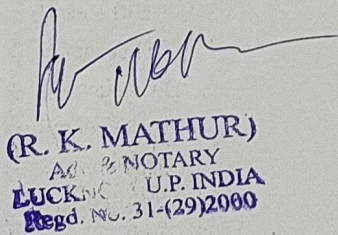 (R. K. MATHUR)
& NOTARY
U.P. INDIA
Regd. No. 31-(29)2000